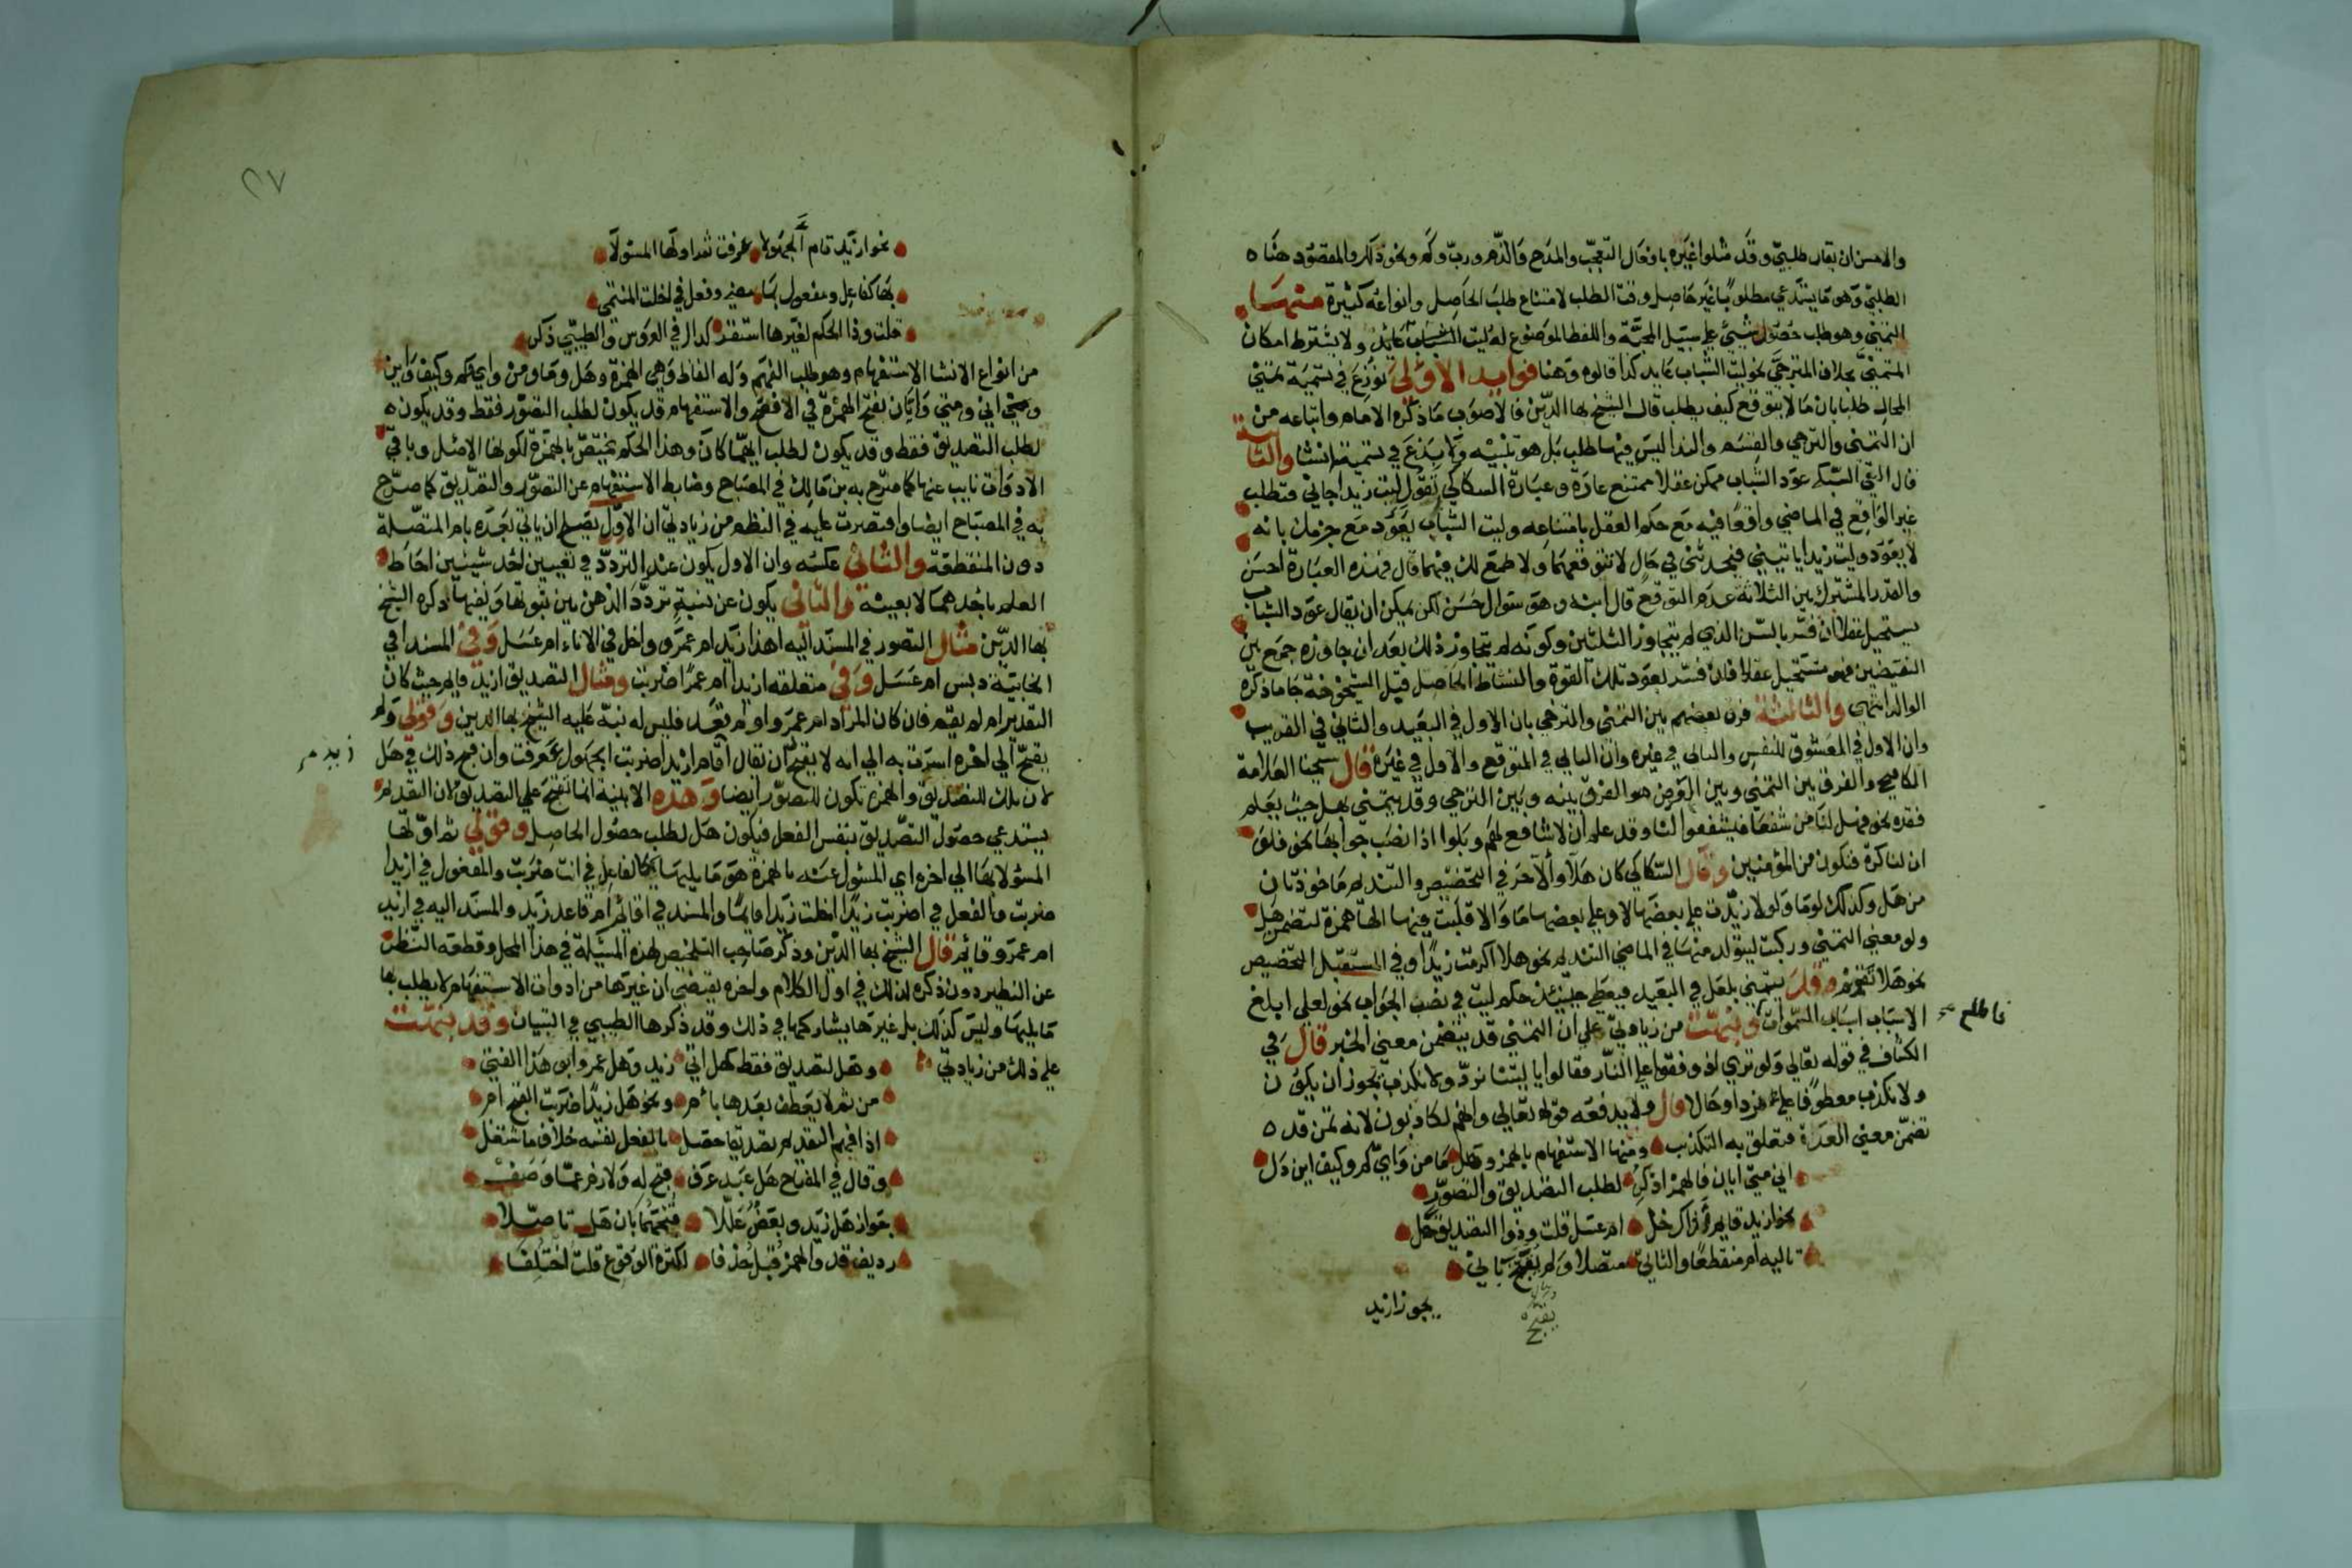 والاحسن ان يقال طلبي وقد مثلوا غيره بافعال التعجب والمدح والذم ورب وكم ونحو ذلك والمقصود هنا ه
الطلبي وهو ما يستدعي مطلوبا غير حاصل وقت الطلب لامتناع طلب الحاصل وانواعه كثيرة منها
التمني وهو طلب حصول شيئ على سبيل المحبة واللفظ الموضوع له ليت الشباب عائد ولا يشترط امكان
المتمني بخلاف المترجي نحو ليت الشباب عايد كذا قالوه وهنا فوايد الاولى نوزع في تسمية تمني
المحال طلبا بان ما لا يتوقع كيف يطلب قال الشيخ بها الدين فالاصوب ما ذكره الامام واتباعه من
ان التمني والترجي والقسم والندا ليس فيها طلب بل هو تنبيه ولا بدع في تسميته انشا والثانية
قال التقي السبكي عود الشباب ممكن عقلا ممتنع عادة وعبارة السكاكي تقول ليت زيدا جاني فتطلب
غير الواقع في الماضي واقعا فيه مع حكم العقل بامتناعه وليت الشباب يعود مع جزمك بانه
لا يعود وليت زيدا ياتيني فيحدثني في حال لا تتوقعهما ولا طمع لك فيهما قال فهذه العبارة احسن
والقدر المشترك بين الثلاثة عدم التوقع قال ابنه وهو سوال حسن لكن يمكن ان يقال عود الشباب
يستحيل عقلا ان فسر بالسن الذي لم يتجاوز الثلثين وكونه لم يتجاوز ذلك بعد ان جاوزه جمع بين
النقيضين فهو مستحيل عقلا فان فسر بعود تلك القوة والنشاط الحاصل قبل الشيخوخة جا ما ذكره
الوالد انتهى والثالثة فرق بعضهم بين التمني والترجي بان الاول في البعيد والثاني في القريب
وان الاول في المعشوق للنفس والثاني في غيره وان الثاني في المتوقع والاول في غيره قال شيخنا العلامة
الكافيجي والفرق بين التمني وبين العرض هو الفرق بينه وبين الترجي وقد يتمنى بهل حيث يعلم
فقده نحو فهل لنا من شفعا فيشفعوا لنا وقد علم ان لا شافع لهم وبلوا اذا نصب جوابها نحو فلو
ان لنا كرة فنكون من المؤمنين وقال السكاكي كان هلا والا لاخر في التحضيض والتنديم ماخوذتان
من هل وكذلك لوما ولولا زيدت على بعضها لا وعلى بعضها ما والا قلبت فيها الها همزة لتضمن هل
ولو معنى التمني وركبت ليتولد منها في الماضي التنديم نحو هلا اكرمت زيدا وفي المستقبل التحضيض
نحو هلا تقوم وقد يتمنى بلعل في البعيد فيعطى حينئذ حكم ليت في نصب الجواب نحو لعلي ابلغ
الاسباب اسباب السموات ونبهت من زيادتي على ان التمني قد يتضمن معنى الخبر قال في
فاطلع
الكشاف في قوله تعالى ولو ترى اذ وقفوا على النار فقالوا يا ليتنا نرد ولا نكذب يجوز ان يكون
ولا نكذب معطوفا على نرد او حالا قال ولا يدفعه قوله تعالى وانهم لكاذبون لانه تمن قد ه
تضمن معنى العدة فتعلق به التكذيب ومنها الاستفهام بالهمز وهل ما من واي كم وكيف اين دل
انى متى ايان فالهمز اذكر لطلب التصديق والتصور
نحو ازيد قايم أذاك خل ام عسل قلت وذو التصديق حل
تاليه ام منقطعا والثاني متصلا ولم يقبح ثاني
يقبح
نحو ازيد
٢٧
نحو ازيد قام ام الجهولا عرفت ثم اولها المسؤلا
بها كفاعل ومفعول بما مضى وفعل في اخلت المنتمى
قلت وذا الحكم لغيرها استقر كذاك في العروس والطيبي ذكر
من انواع الانشا الاستفهام وهو طلب الفهم وله الفاظ وهي الهمزة وهل وما ومن واي وكم وكيف واين
وانى ومتى وايان بفتح الهمزة في الافصح والاستفهام قد يكون لطلب التصور فقط وقد يكون ه
لطلب التصديق فقط وقد يكون لطلب ايهما كان وهذا الحكم يختص بالهمزة لكونها الاصل وباقي
الادوات نايب عنها كما صرح به بن مالك في المصباح وضابط الاستفهام عن التصور والتصديق كما صرح
به في المصباح ايضا واقتصرت عليه في النظم من زيادتي ان الاول يصلح ان ياتي بعده بام المتصلة
دون المنقطعة والثاني عكسه وان الاول يكون عند التردد في تعيين احد شيئين احاط
العلم باحدهما لا بعينه والثاني يكون عن نسبة تردد الذهن بين ثبوتها ونفيها ذكره الشيخ
بها الدين مثال التصور في المسند اليه اهذا زيد ام عمرو واخل في الاناء ام عسل وفي المسند افي
الخابية دبس ام عسل وفي متعلقه ازيدا ام عمرا ضربت ومثال التصديق ازيد قايم حيث كان
التقدير ام لم يقم فان كان المراد ام عمرو او ام يقعد فليس له نبه عليه الشيخ بها الدين وقولي ولم
يقبح الى اخره اشرت به الى انه لا يقبح ان يقال أقام ازيدا ضربت ام الجهول عرفت وان قبح ذلك في هل
زيد مر
لان تلك للتصديق والهمزة تكون للتصور ايضا وهذه الابنية انما تقبح على التصديق لان التقديم
يستدعي حصول التصديق بنفس الفعل فيكون هل لطلب حصول الحاصل وقولي ثم اولها
المسؤلا بها الى اخره اي المسئول عنه بالهمزة هو ما يليها كالفاعل في انت ضربت والمفعول في ازيدا
ضربت والفعل في اضربت زيدا اخلت زيدا قايما والمسند في اقائم ام قاعد زيد والمسند اليه في ازيد
ام عمرو قائم قال الشيخ بها الدين وذكر صاحب التلخيص لهذه المسئلة في هذا المحل وقطعه النظر
عن النظير دون ذكره لذلك في اول الكلام واخره يقتضي ان غيرها من ادوات الاستفهام لا يطلب بها
ما يليها وليس كذلك بل غيرها يشاركها في ذلك وقد ذكرها الطيبي في التبيان وقد نبهت
على ذلك من زيادتي وهل لتصديق فقط كهل اتى زيد وهل عمرو ابو هذا الفتى
من ثم لا يعطف بعدها بام ونحو هل زيدا ضربت القبح ام
اذا فهم التقديم تصديقا حصل بالفعل نفسه خلاف ما شتغل
وقال في المفتاح هل عبد عرف قبح له ولازم عما وصف
جواز هل زيد وبعض عللا قبحهما بان هل تاصلا
رديف قد والهمز قبل حذفا لكثرة الوقوع قلت اختلفا